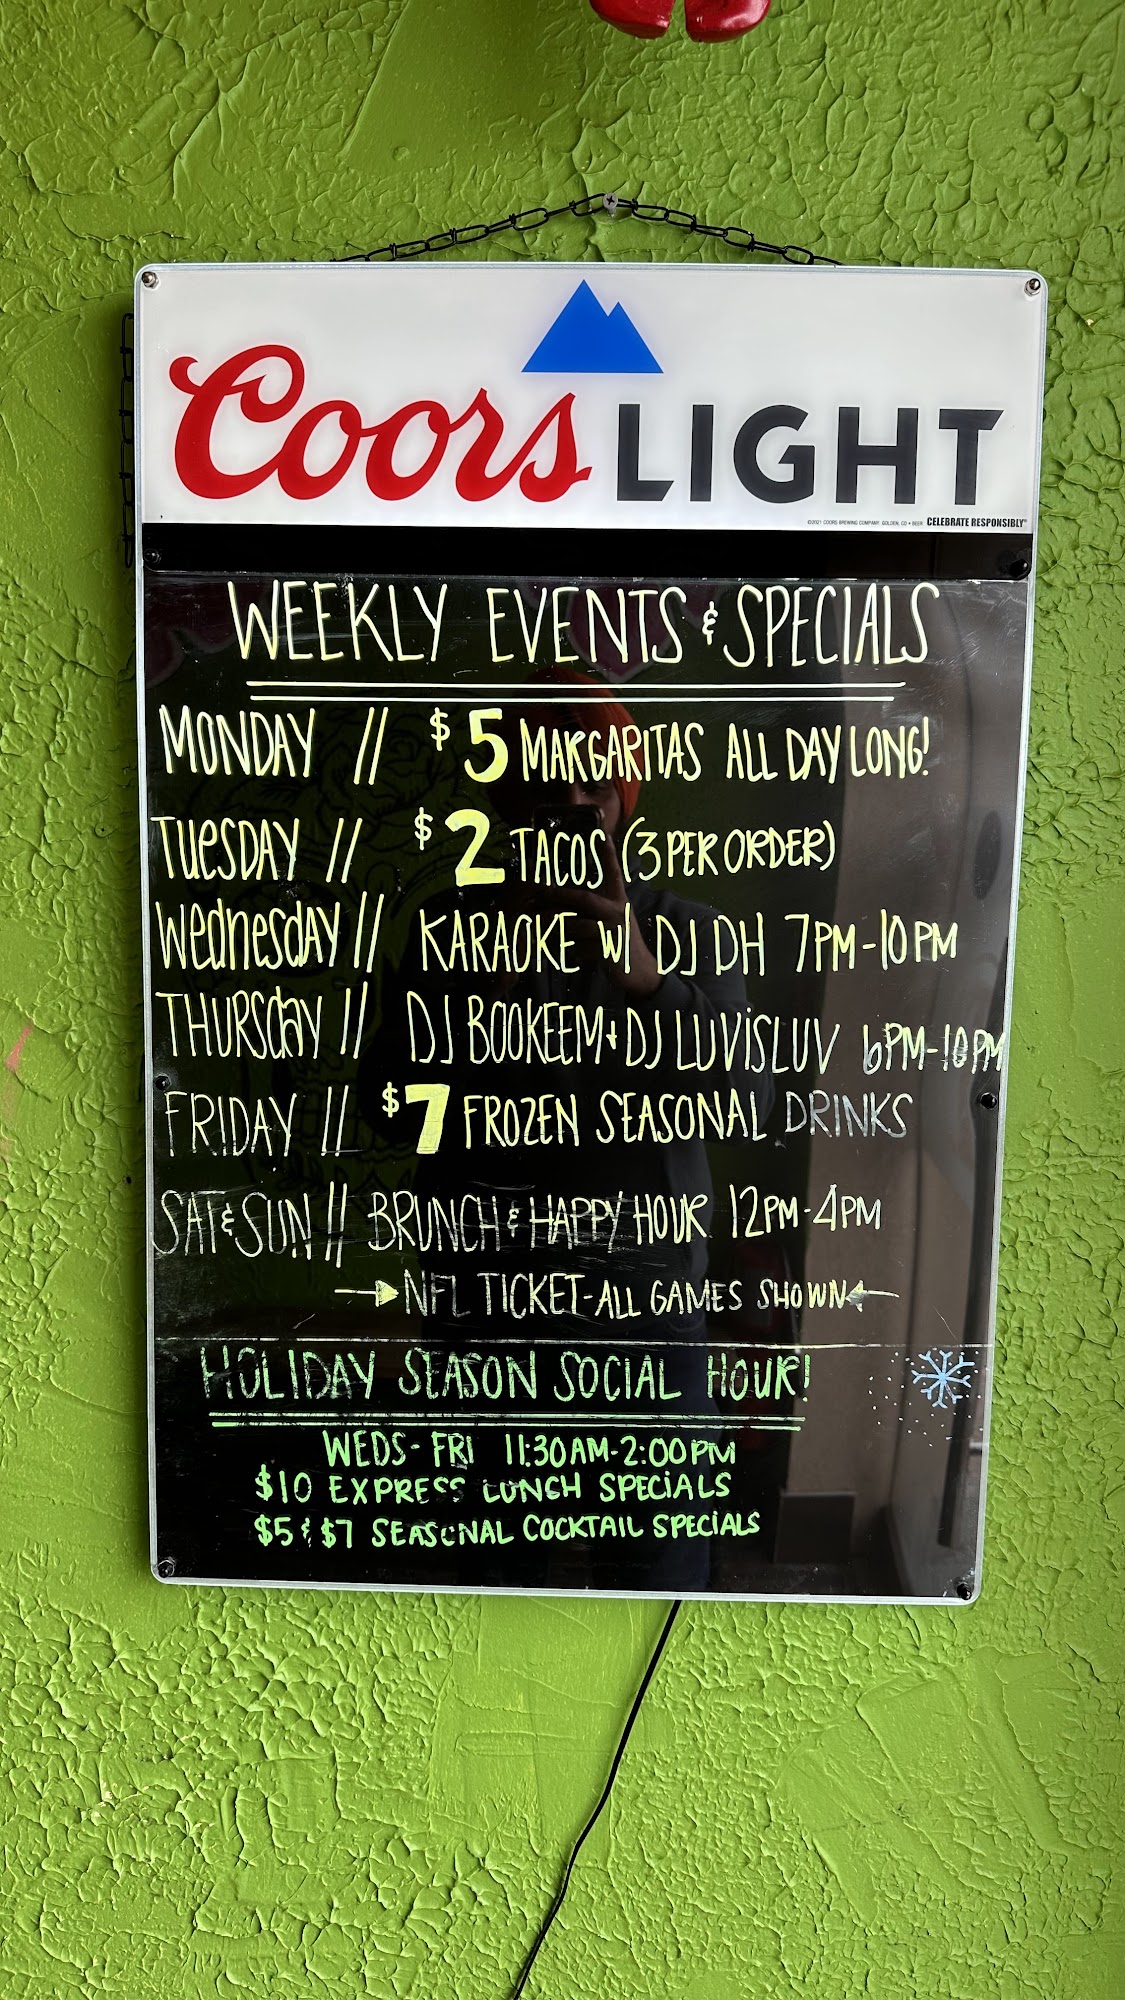 Coors LIGHT
©2021 COORS BREWING COMPANY, GOLDEN, CO • BEER CELEBRATE RESPONSIBLY®
WEEKLY EVENTS & SPECIALS
MONDAY // $5 MARGARITAS ALL DAY LONG!
TUeSDAY // $2 TACOS (3 PER ORDER)
WednesdAY // KARAOKE w/ DJ DH 7PM-10PM
THURSdaY // DJ BOOKEEM + DJ LUViSLUV 6PM-10PM
FRIDAY // $7 FROZEN SEASONAL DRINKS
SAT & SUN // BRUNCH & HAPPY HOUR 12PM-4PM
NFL TICKET-ALL GAMES SHOWN
HOLIDAY SEASON SOCIAL HOUR!
WEDS-FRI 11:30AM-2:00PM
$10 EXPRESS LUNCH SPECiALS
$5 & $7 SEASONAL COCKTAIL SPECIALS